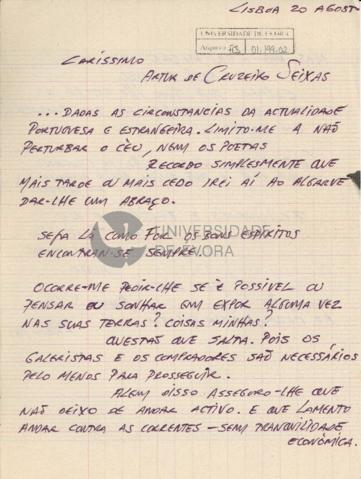 LISBOA 20 AGOSTO
UNIVERSIDADE DE ÉVORA
CARÍSSIMO
ARTUR DE CRUZEIRO SEIXAS
... DADAS AS CIRCONSTANCIAS DA ACTUALIDADE
PORTUGUESA E ESTRANGEIRA. LIMITO-ME A NÃO
PERTURBAR O CÉU, NEM OS POETAS
RECORDO SIMPLESMENTE QUE
MAIS TARDE OU MAIS CEDO IREI AÍ AO ALGARVE
DAR-LHE UM ABRAÇO.
SEJA LÁ COMO FOR OS BONS ESPIRITOS
ENCONTRAM-SE SEMPRE.
UNIVERSIDADE
DE ÉVORA
OCORRE-ME PEDIR-LHE SE É POSSIVEL OU
PENSAR OU SONHAR EM EXPOR ALGUMA VEZ
NAS SUAS TERRAS? COISAS MINHAS?
QUESTÃO QUE SALTA. POIS OS
GALERISTAS E OS COMPRADORES SÃO NECESSÁRIOS
PELO MENOS PARA PROSSEGUIR.
ALEM DISSO ASSEGURO-LHE QUE
NÃO DEIXO DE ANDAR ACTIVO. E QUE LAMENTO
ANDAR CONTRA AS CORRENTES – SEM TRANQUILIDADE
ECONÓMICA.